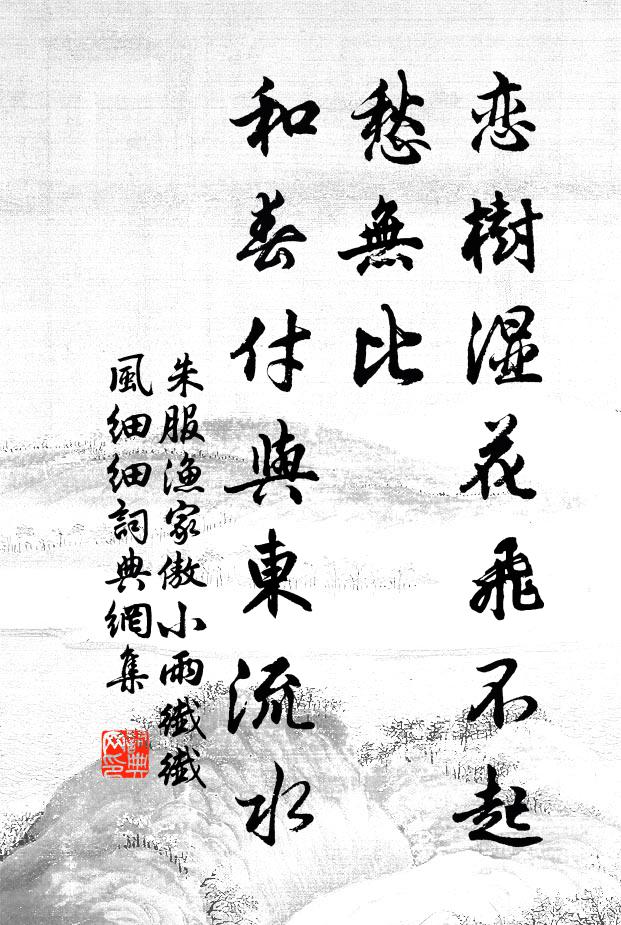 恋樹湿花飛不起
愁無比
和春付與東流水
朱服漁家傲小雨纖纖
風細細詞典網集